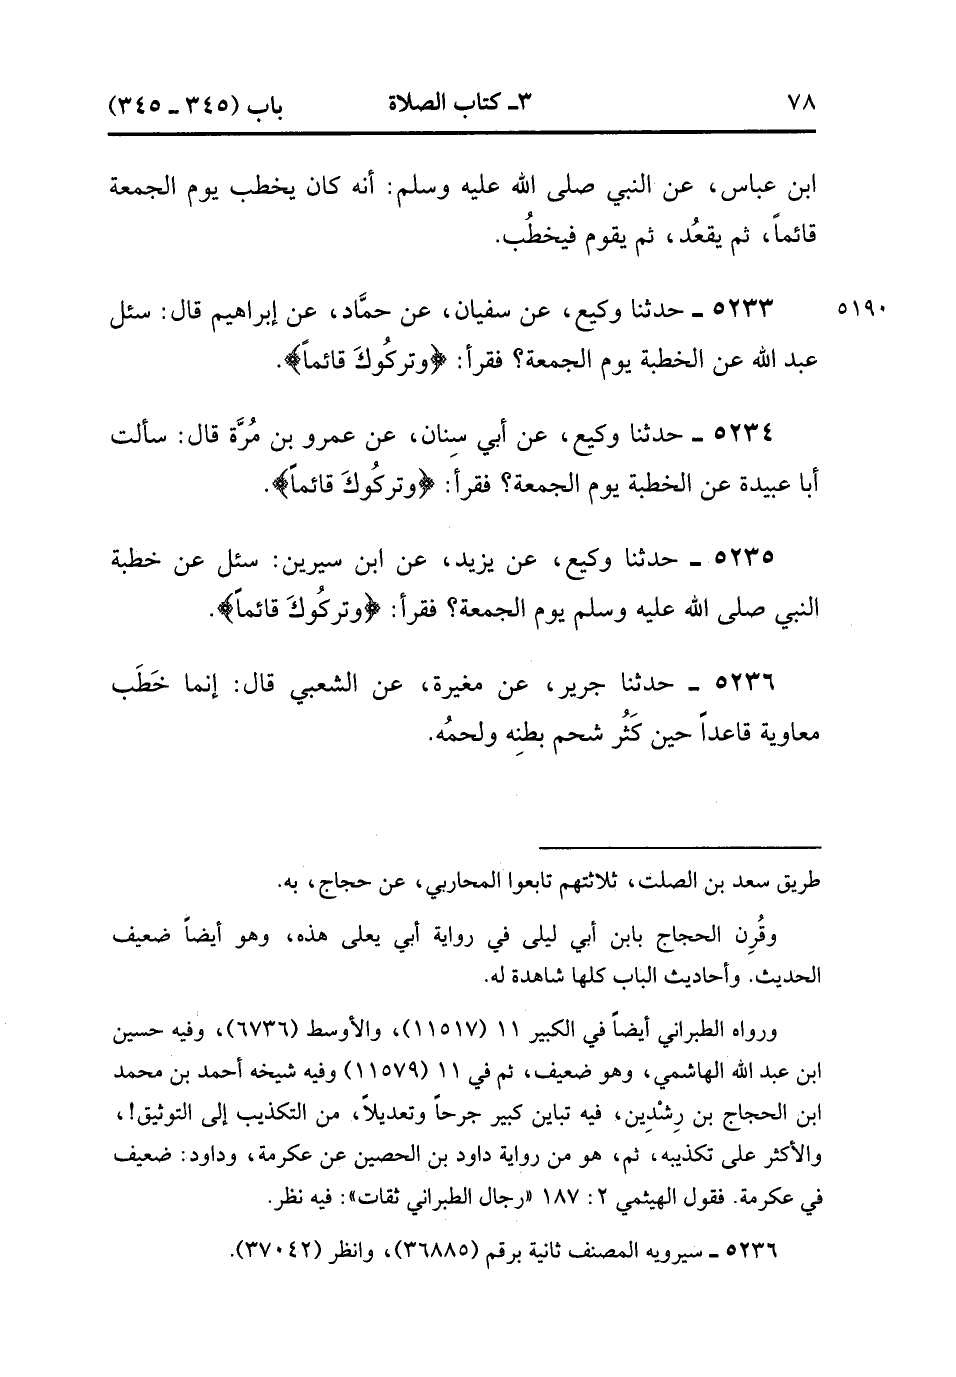 ٧٨ ٣ـ كتاب الصلاة باب (٣٤٥ ـ ٣٤٥)
ابن عباس، عن النبي صلى الله عليه وسلم: أنه كان يخطُب يوم الجمعة
قائماً، ثم يقعُد، ثم يقوم فيخطُب.
٥١٩٠ ٥٢٣٣ ـ حدثنا وكيع، عن سفيان، عن حمَّاد، عن إبراهيم قال: سئل
عبد الله عن الخطبة يوم الجمعة؟ فقرأ: ﴿وتركُوكَ قائماً﴾.
٥٢٣٤ ـ حدثنا وكيع، عن أبي سِنان، عن عمرو بن مُرَّة قال: سألت
أبا عبيدة عن الخطبة يوم الجمعة؟ فقرأ: ﴿وتركُوكَ قائماً﴾.
٥٢٣٥ ـ حدثنا وكيع، عن يزيد، عن ابن سيرين: سئل عن خطبة
النبي صلى الله عليه وسلم يوم الجمعة؟ فقرأ: ﴿وتركُوكَ قائماً﴾.
٥٢٣٦ ـ حدثنا جرير، عن مغيرة، عن الشعبي قال: إنما خَطَب
معاوية قاعداً حين كَثُر شحم بطنِه ولحمُه.
طريق سعد بن الصلت، ثلاثتهم تابعوا المحاربي، عن حجاج، به.
وقُرِن الحجاج بابن أبي ليلى في رواية أبي يعلى هذه، وهو أيضاً ضعيف
الحديث. وأحاديث الباب كلها شاهدة له.
ورواه الطبراني أيضاً في الكبير ١١ (١١٥١٧)، والأوسط (٦٧٣٦)، وفيه حسين
ابن عبد الله الهاشمي، وهو ضعيف، ثم في ١١ (١١٥٧٩) وفيه شيخه أحمد بن محمد
ابن الحجاج بن رِشْدِين، فيه تباين كبير جرحاً وتعديلاً، من التكذيب إلى التوثيق!،
والأكثر على تكذيبه، ثم، هو من رواية داود بن الحصين عن عكرمة، وداود: ضعيف
في عكرمة. فقول الهيثمي ٢: ١٨٧ «رجال الطبراني ثقات»: فيه نظر.
٥٢٣٦ ـ سيرويه المصنف ثانية برقم (٣٦٨٨٥)، وانظر (٣٧٠٤٢).